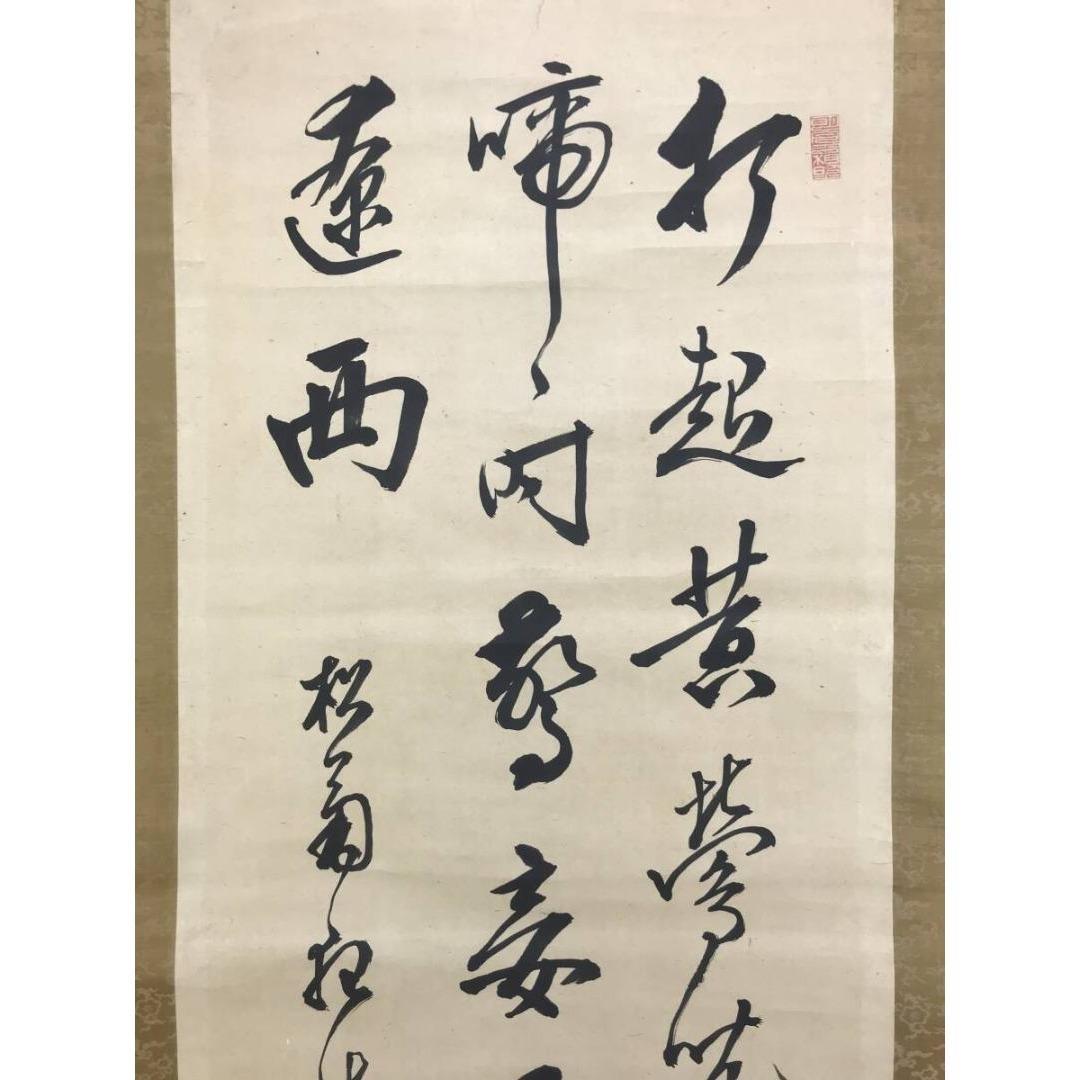 打起黄鶯
啼〻時驚妾
遼西
松